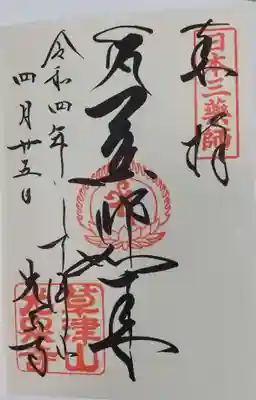 日本三薬師
奉拝
薬師如来
令和四年
四月廿五日
光泉寺
草津山
光泉寺